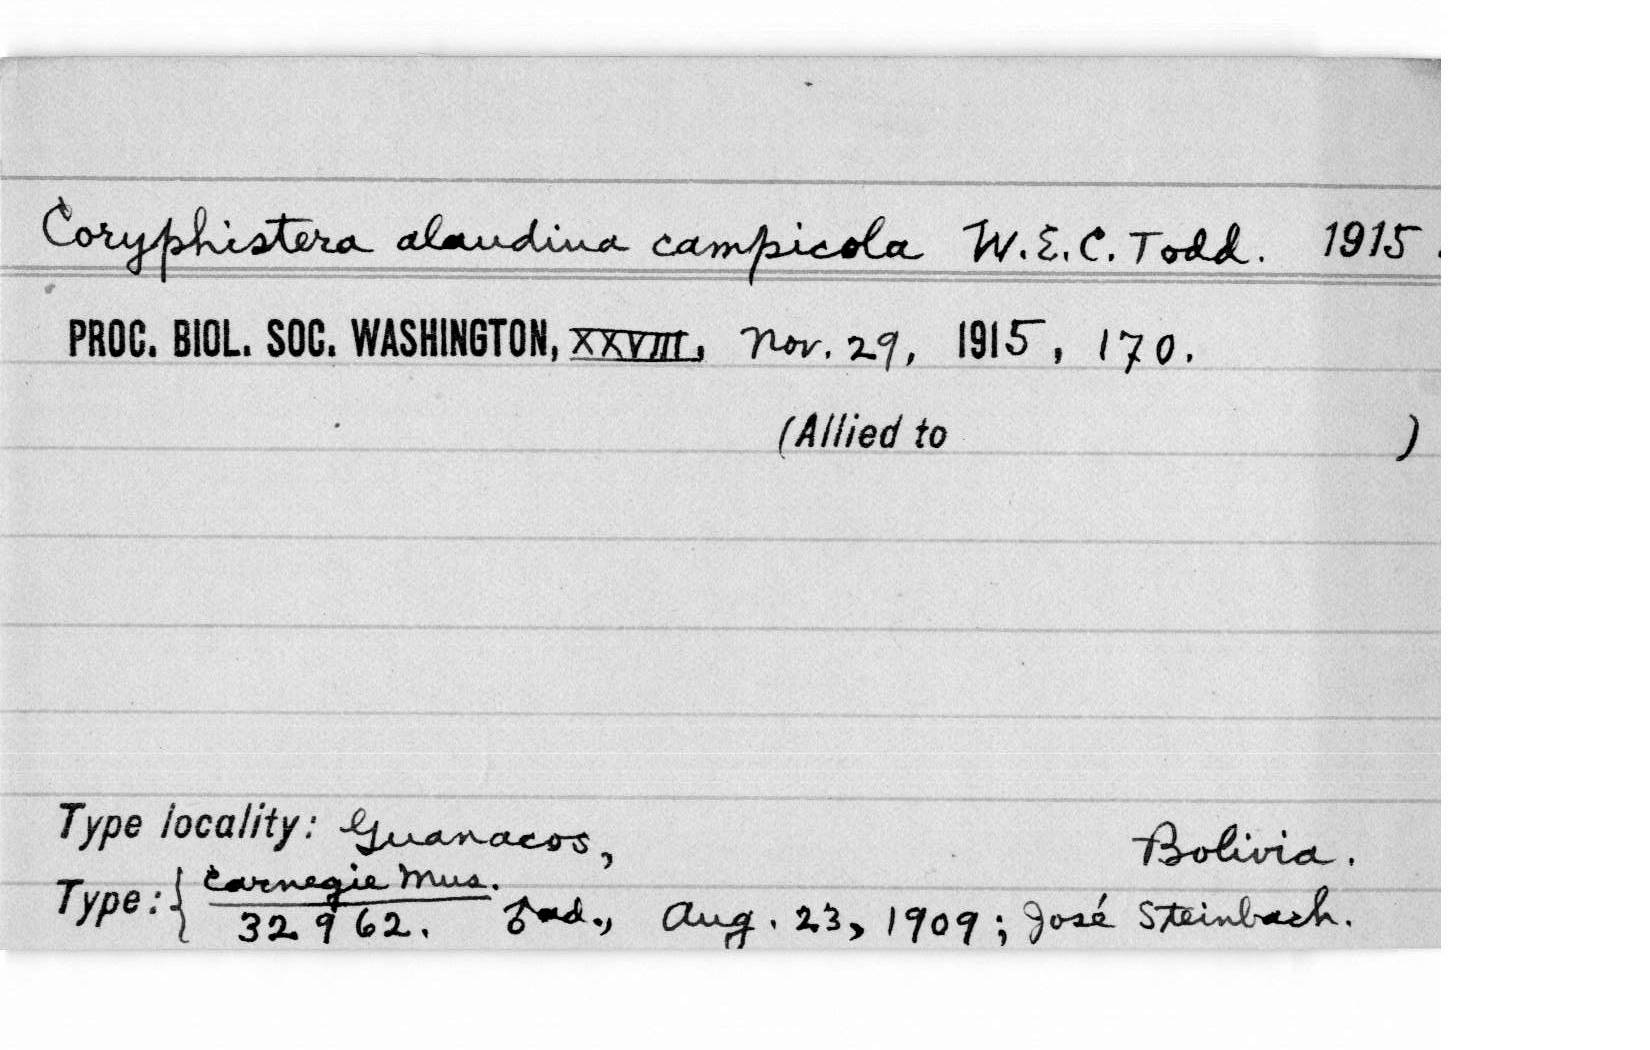 Coryphistera alaudina campicola W.E.C. Todd. 1915.
PROC. BIOL. SOC. WASHINGTON, XXVIII, Nov. 29, 1915, 170.
(Allied to )
Type locality: Guanacos, Bolivia.
Type: { Carnegie Mus.
32962. ♂ ad., Aug. 23, 1909; José Steinbach.